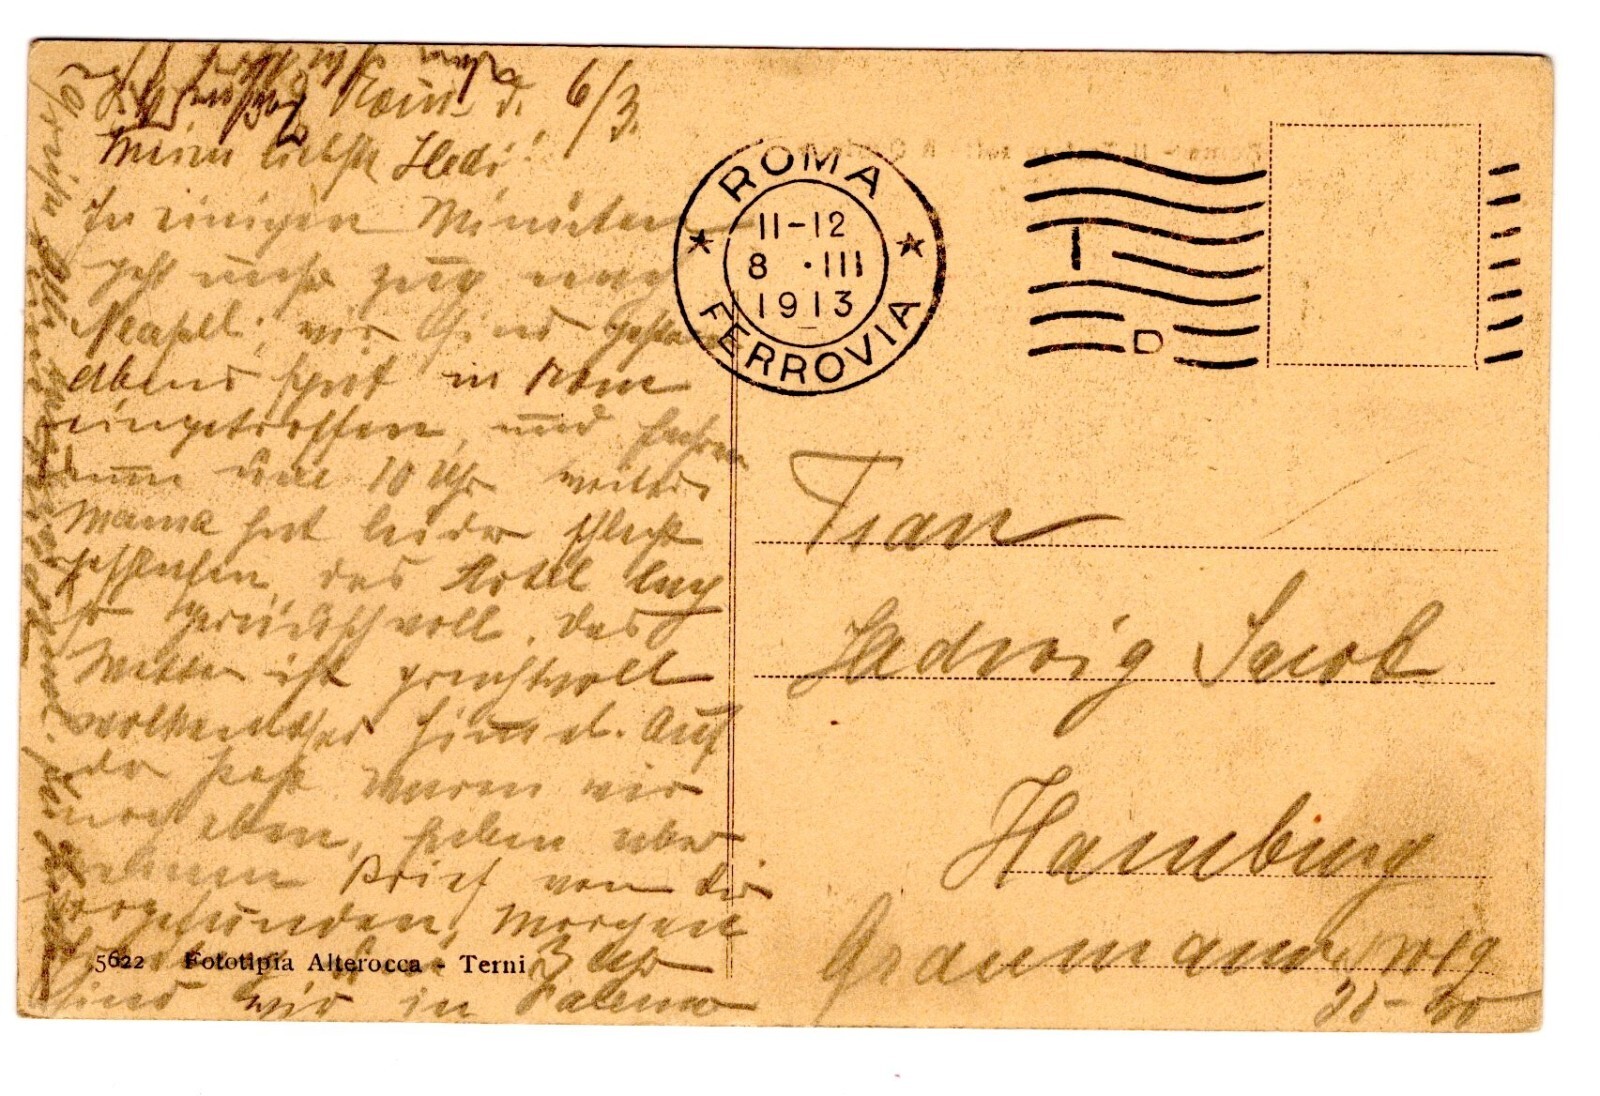 Rom d. 6/3.
Meine liebste Hedi!
In einigen Minuten
geht unser Zug nach
Neapel, wir sind gestern
Abend spät in Rom
eingetroffen, und fahren
nun um 10 Uhr weiter.
Mama hat leider schlecht
geschlafen, das Hotel lag
so geräuschvoll. Das
Wetter ist prachtvoll
wolkenloser Himmel. Auf
der Post waren wir
noch eben, haben aber
keinen Brief von Dir
vorgefunden, Morgen
3 Uhr
sind wir in Palermo
5622 Fototipia Alterocca - Terni
ROMA
11-12
8 · III
1913
FERROVIA
Frau
Hedwig Jacob
Hamburg
Graumannsweg